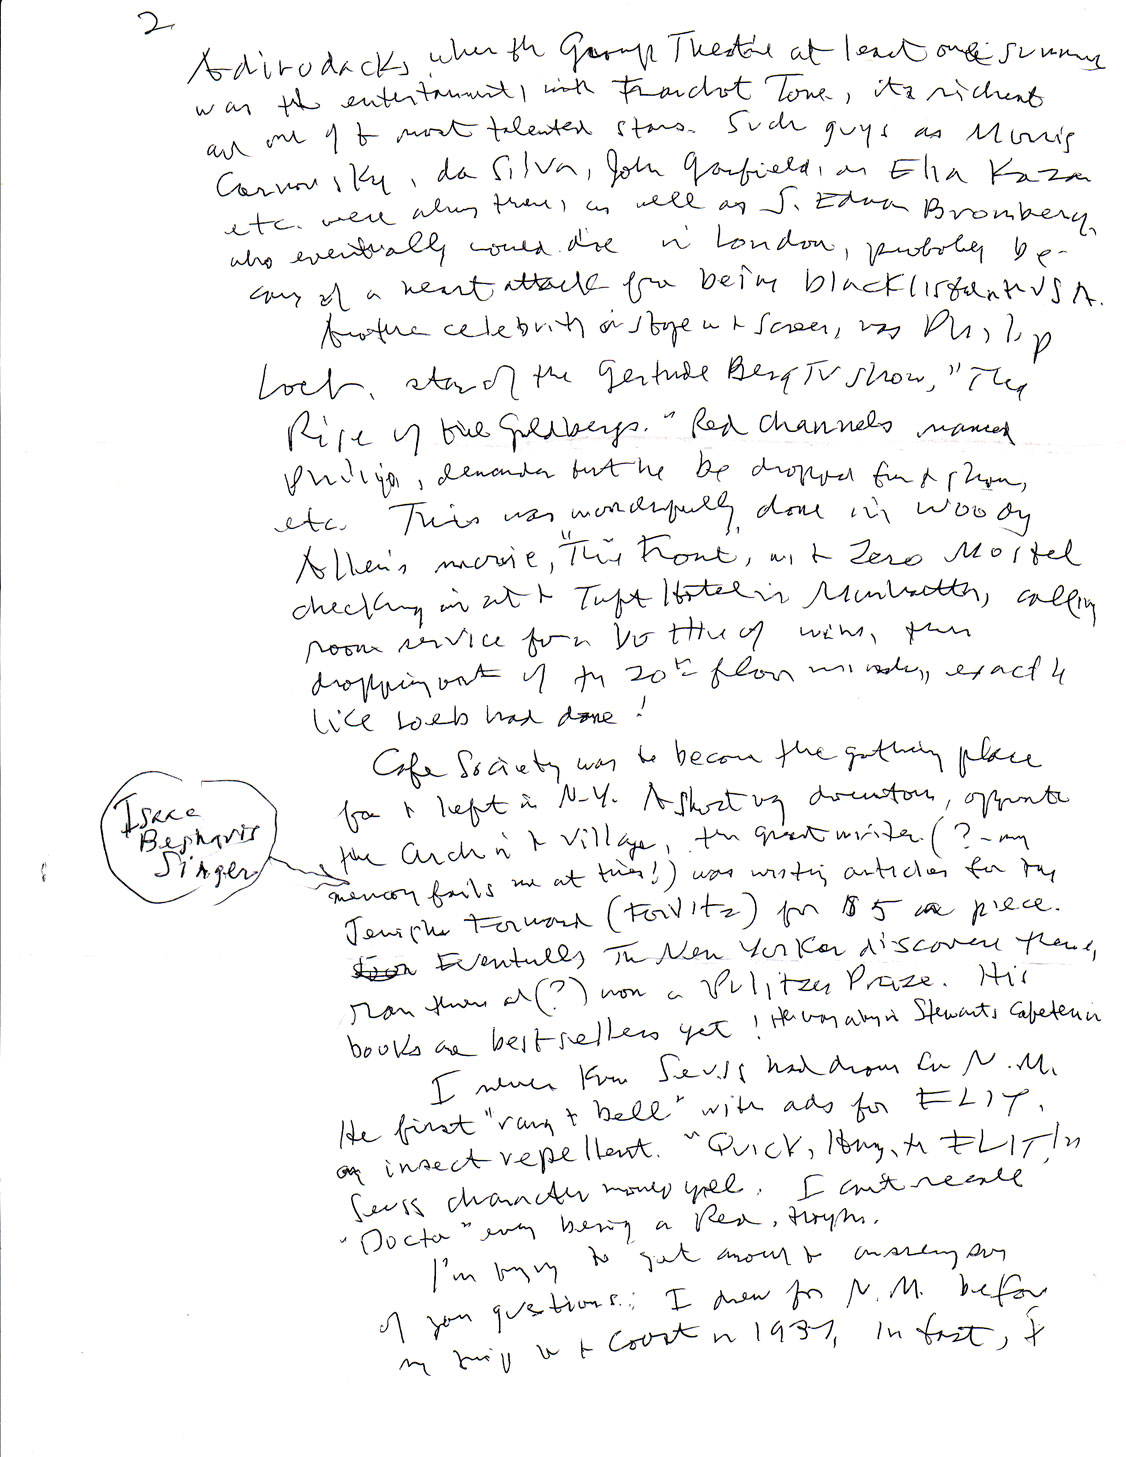 2
Adirodacks, when the Group Theatre at least one summer
was the entertainment, with Franchot Tone, its richest
and one of t most talented stars. Such guys as Morris
Carnovsky, da Silva, John Garfield, an Elia Kazan
etc. were always there, as well as J. Edwar Bromberg,
who eventually would die in London, probably be-
cause of a heart attack from being blacklisted in t USA.
Another celebrity on stage an t screen, was Philip
Loeb, star of the Gertrude Berg TV show, "The
Rise of the Goldbergs." Red Channels named
Philip, demanded that he be dropped from t show,
etc. This was wonderfully done in Woody
Allen's movie, "The Front", with Zero Mostel
checking in at t Taft Hotel in Manhattan, calling
room service for a bottle of wine, then
dropping out of the 20th floor window, exactly
like Loeb had done!
Cafe Society was to become the gathering place
for t Left in N.Y. A short way downtown, opposite
the Arch in t Village, the great writer (?-my
memory fails me at times!) was writing articles for the
Jewish Forward (Forvitz) for $5 a piece.
Eventually The New Yorker discovered them,
ran them and (?) won a Pulitzer Praze. His
books are bestsellers yet! He was always in Stewarts Cafeteria
Isaac
Beshavis
Singer
I never knew Seuss had drawn for N.M.
He first "rang t bell" with ads for FLIT,
an insect repellent. "Quick, Henry, the FLIT!"
Seuss character would yell. I can't recall
"Doctor" ever being a Red, though.
I'm trying to get around t answering any
of your questions: I drew for N.M. before
my trip to t Coast in 1937, In fact, I